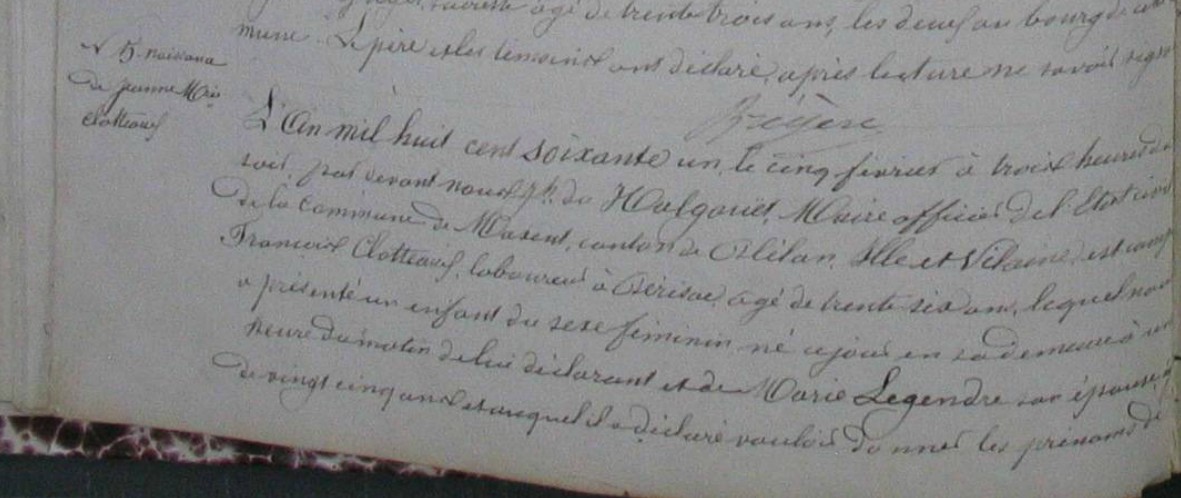 âgé de trente trois ans, les deux au bourg de
mune. Le père et les témoins ont déclaré, après lecture ne savoir signer
N 5. naissance
de Jeanne Mie
Clotteaux
L'An mil huit cent soixante un, le cinq février à trois heures du
soir, par devant nous Ph. du Halgouet, Maire officier de l'Etat civil
de la Commune de Maxent, canton de Plélan, Ille et Vilaine, est comp
François Clotteaux, laboureur à Périsac, âgé de trente six ans, lequel nous
a présenté un enfant du sexe féminin né ce jour en sa demeure à un
heure du matin de lui déclarant et de Marie Legendre son épouse, a
de vingt cinq ans et auquel il a déclaré vouloir donner les prénoms de